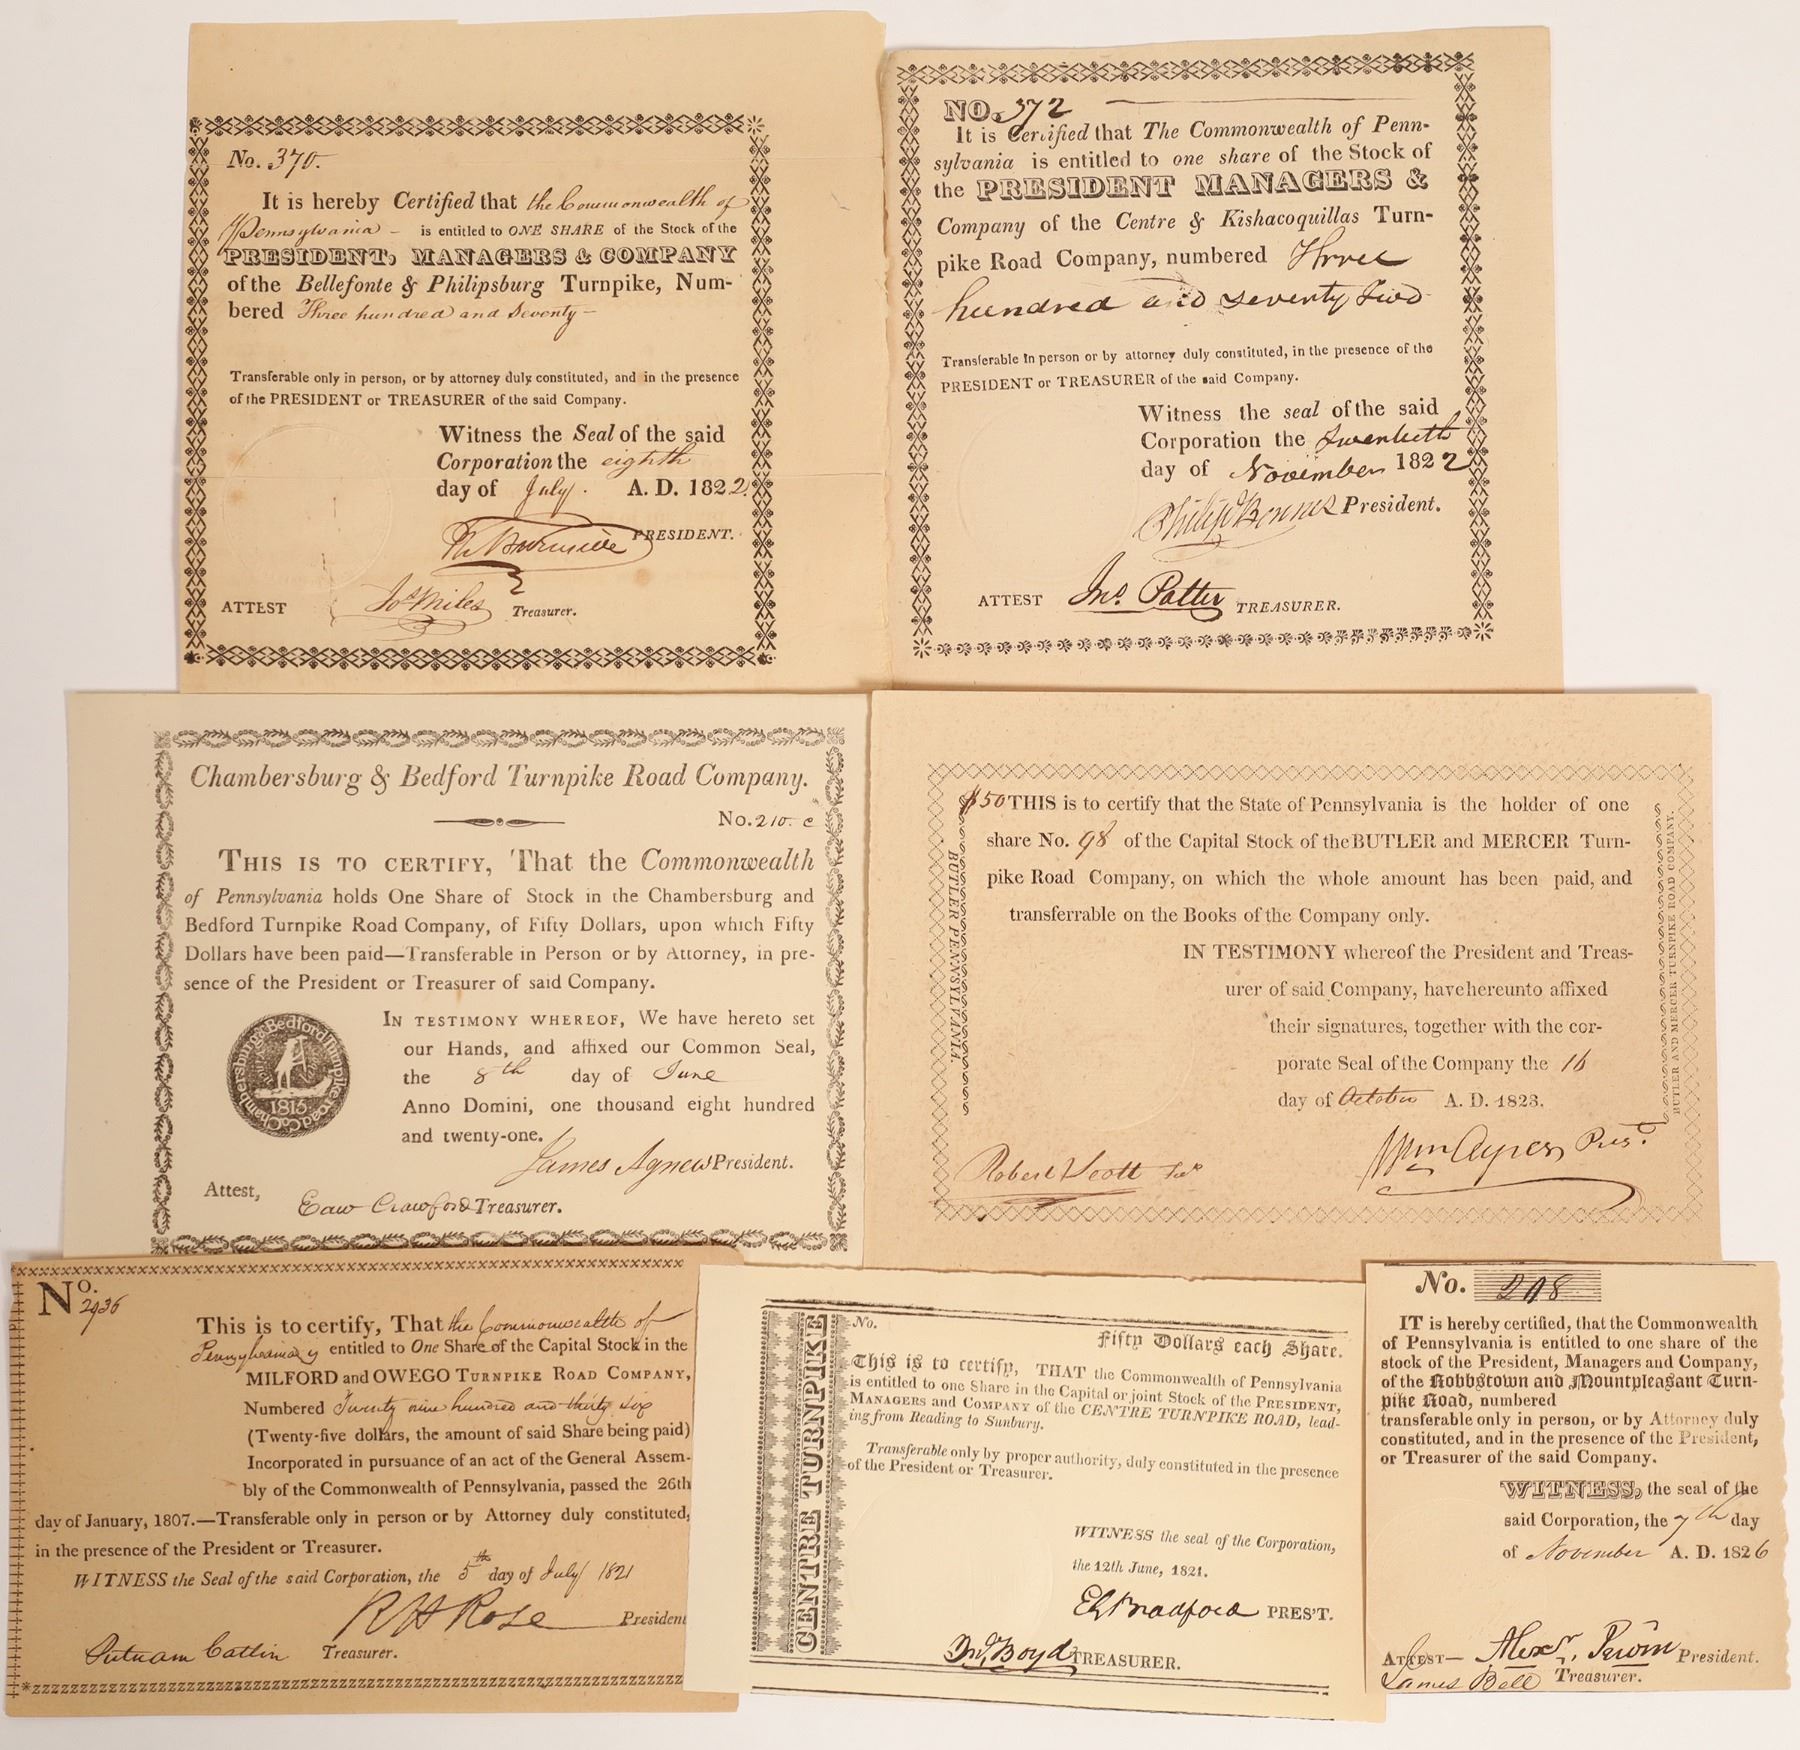 No. 370.
It is hereby Certified that the Commonwealth of
Pennsylvania – is entitled to ONE SHARE of the Stock of the
PRESIDENT, MANAGERS & COMPANY
of the Bellefonte & Philipsburg Turnpike, Num-
bered Three hundred and Seventy –
Transferable only in person, or by attorney duly constituted, and in the presence
of the PRESIDENT or TREASURER of the said Company.
Witness the Seal of the said
Corporation the eighth
day of July. A. D. 1822.
PRESIDENT.
ATTEST Jos Miles Treasurer.
NO. 372
It is Certified that The Commonwealth of Penn-
sylvania is entitled to one share of the Stock of
the PRESIDENT MANAGERS &
Company of the Centre & Kishacoquillas Turn-
pike Road Company, numbered Three
hundred and seventy two
Transferable in person or by attorney duly constituted, in the presence of the
PRESIDENT or TREASURER of the said Company.
Witness the seal of the said
Corporation the twentieth
day of November 1822
Philip Benner President.
ATTEST Jno. Potter TREASURER.
Chambersburg & Bedford Turnpike Road Company.
No. 210. c
THIS IS TO CERTIFY, That the Commonwealth
of Pennsylvania holds One Share of Stock in the Chambersburg and
Bedford Turnpike Road Company, of Fifty Dollars, upon which Fifty
Dollars have been paid—Transferable in Person or by Attorney, in pre-
sence of the President or Treasurer of said Company.
IN TESTIMONY WHEREOF, We have hereto set
our Hands, and affixed our Common Seal,
the 8th day of June
Anno Domini, one thousand eight hundred
and twenty-one.
James Agnew President.
Attest,
Edw Crawford Treasurer.
Chambersburg & Bedford Turnpike road Co
1815
$50 THIS is to certify that the State of Pennsylvania is the holder of one
share No. 98 of the Capital Stock of the BUTLER and MERCER Turn-
pike Road Company, on which the whole amount has been paid, and
transferrable on the Books of the Company only.
IN TESTIMONY whereof the President and Treas-
urer of said Company, have hereunto affixed
their signatures, together with the cor-
porate Seal of the Company the 16
day of October A. D. 1823.
Robert Scott Tr
Wm Ayres Pres.t
BUTLER PENNSYLVANIA.
BUTLER AND MERCER TURNPIKE ROAD COMPANY.
No.
2936
This is to certify, That the Commonwealth of
Pennsylvania is entitled to One Share of the Capital Stock in the
MILFORD and OWEGO TURNPIKE ROAD COMPANY,
Numbered Twenty nine hundred and thirty six
(Twenty-five dollars, the amount of said Share being paid)
Incorporated in pursuance of an act of the General Assem-
bly of the Commonwealth of Pennsylvania, passed the 26th
day of January, 1807.—Transferable only in person or by Attorney duly constituted,
in the presence of the President or Treasurer.
WITNESS the Seal of the said Corporation, the 5th day of July 1821
R H Rose President
Putnam Catlin Treasurer.
CENTRE TURNPIKE
No.
Fifty Dollars each Share.
This is to certify, THAT the Commonwealth of Pennsylvania
is entitled to one Share in the Capital or joint Stock of the PRESIDENT,
MANAGERS and COMPANY of the CENTRE TURNPIKE ROAD, lead-
ing from Reading to Sunbury.
Transferable only by proper authority, duly constituted in the presence
of the President or Treasurer.
WITNESS the seal of the Corporation,
the 12th June, 1821.
Eb Bradford PRES'T.
Jno, Boyd TREASURER.
No. 298
IT is hereby certified, that the Commonwealth
of Pennsylvania is entitled to one share of the
stock of the President, Managers and Company,
of the Robbstown and Mountpleasant Turn-
pike Road, numbered
transferable only in person, or by Attorney duly
constituted, and in the presence of the President,
or Treasurer of the said Company.
WITNESS, the seal of the
said Corporation, the 7th day
of November A. D. 1826
ATTEST— Alexr. Irwin President.
James Bell Treasurer.